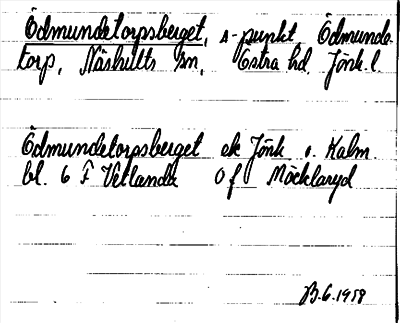 Ödmundetorpsberget, s-punkt Ödmunde-
torp, Näshults sn, Östra hd. Jönk. l.
Ödmundetorpsberget ek Jönk o. Kalm.
bl. 6 F Vetlanda O f Möcklaryd
B.G. 1958